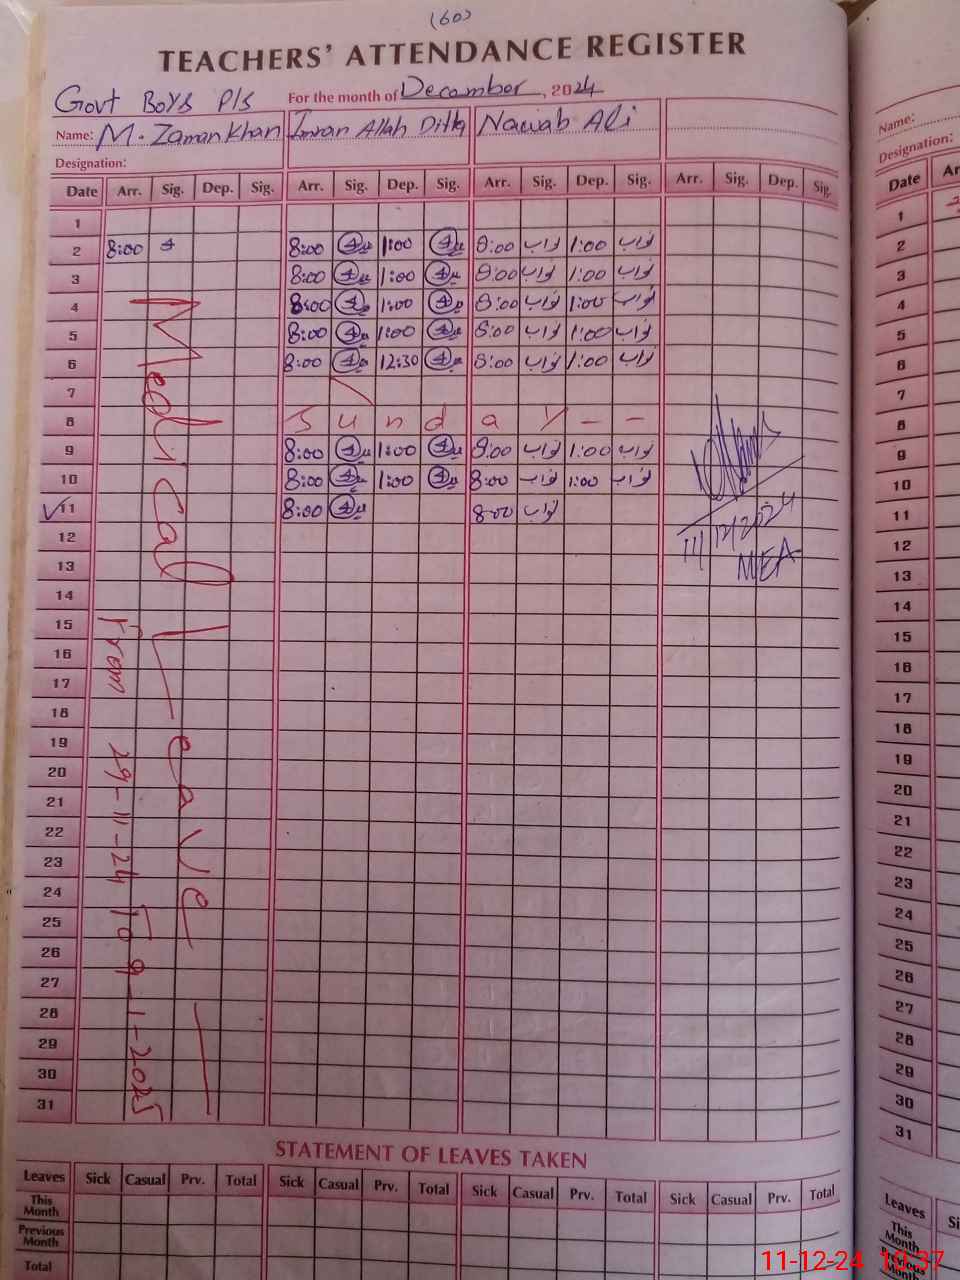 (60)
TEACHERS' ATTENDANCE REGISTER
Govt Boys P/s For the month of December, 2024
Name: M. Zaman Khan Imran Allah Ditta Nawab Ali
Designation:
Date Arr. Sig. Dep. Sig. Arr. Sig. Dep. Sig. Arr. Sig. Dep. Sig. Arr. Sig. Dep. Sig.
1
2 8:00 8:00 1:00 8:00 نواب 1:00 نواب
3 8:00 1:00 8:00 نواب 1:00 نواب
4 8:00 1:00 8:00 نواب 1:00 نواب
5 8:00 1:00 8:00 نواب 1:00 نواب
6 8:00 12:30 8:00 نواب 1:00 نواب
7
8 Sunday - -
9 8:00 1:00 8:00 نواب 1:00 نواب
10 8:00 1:00 8:00 نواب 1:00 نواب
11 8:00 8:00 نواب
12
13
14
15
16
17
18
19
20
21
22
23
24
25
26
27
28
29
30
31
Medical Leave
From 29-11-24 To 9-1-2025
11/12/2024
MEA
STATEMENT OF LEAVES TAKEN
Leaves Sick Casual Prv. Total Sick Casual Prv. Total Sick Casual Prv. Total Sick Casual Prv. Total
This Month
Previous Month
Total
Name:
Designation:
Date Ar
1
2
3
4
5
6
7
8
9
10
11
12
13
14
15
16
17
18
19
20
21
22
23
24
25
26
27
28
29
30
31
Leaves Si
This Month
Previous Month
11-12-24 10:37